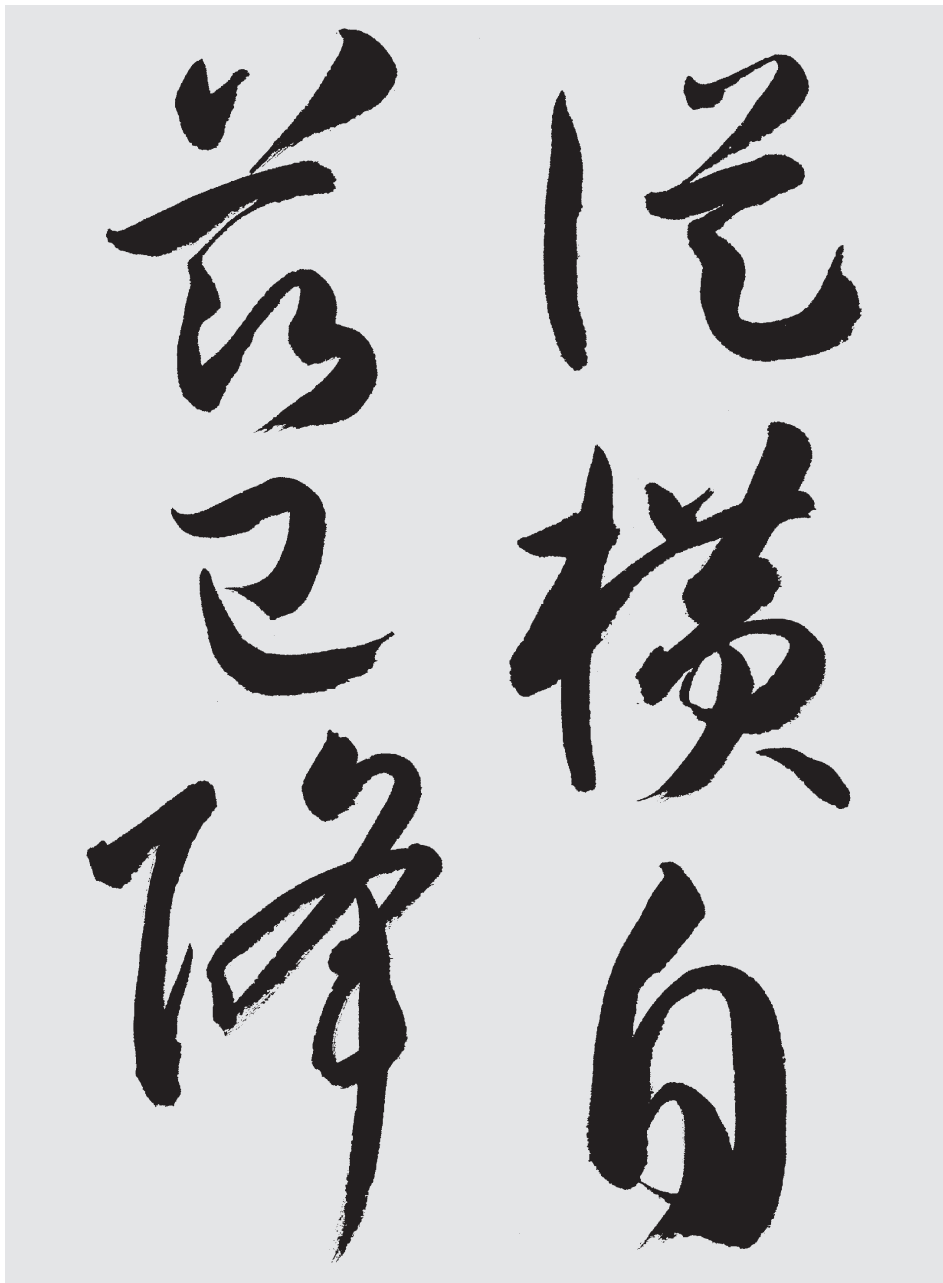 從橫自
茲已降